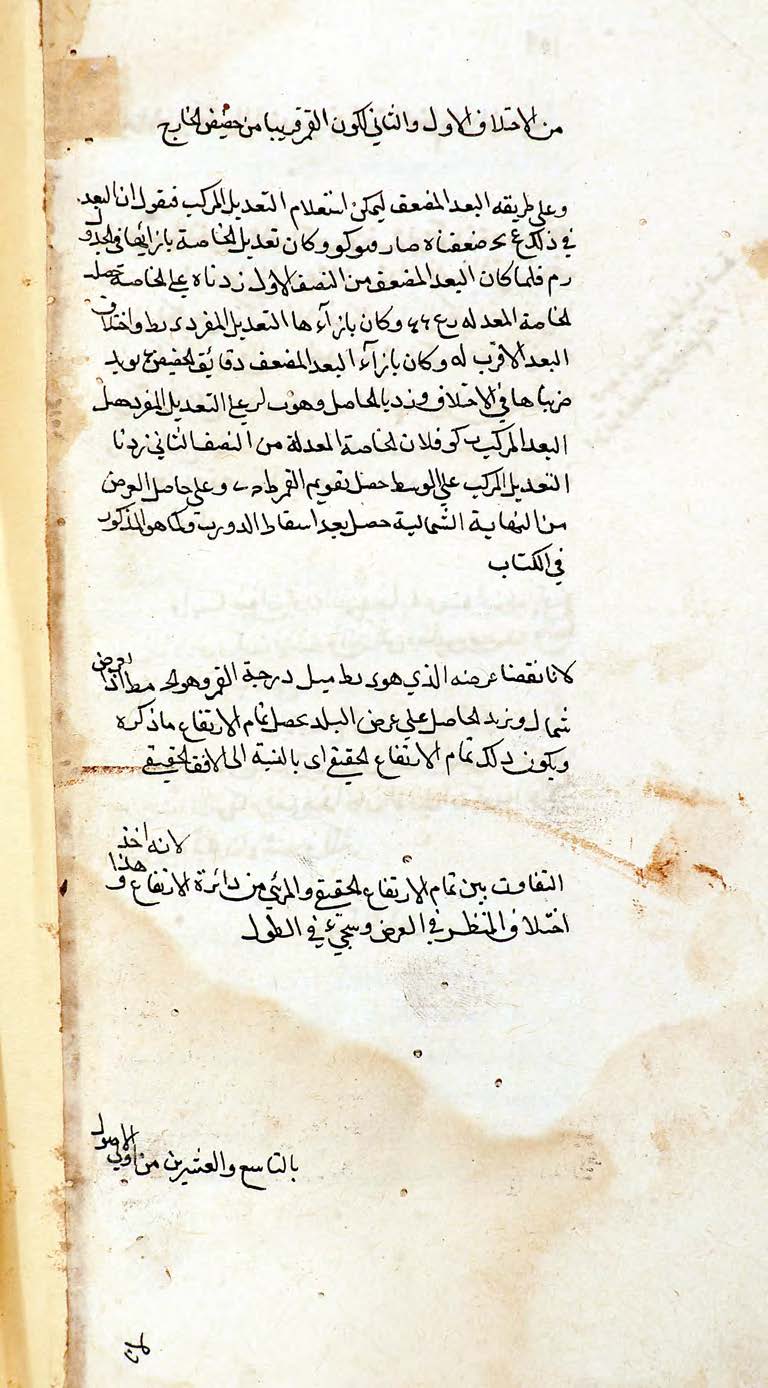 من الاختلاف الاول والثاني لكون القمر قريبا من حضيض الخارج
وعلى طريقه البعد المضعف ليمكن استعلام التعديل المركب فنقول ان البعد
في ذلك ضعفناه صار وكان تعديل الخاصة بازائها في الجدول
فلما كان البعد المضعف من النصف الاول زدناه على الخاصة حصل
الخاصة المعدله وكان بازاءها التعديل المفرد واختلاف
البعد الاقرب له وكان بازآء البعد المضعف دقايق الحضيض
ضربناها في الاختلاف وزدنا الحاصل وهو على التعديل المفرد حصل
البعد المركب فلان الخاصة المعدلة من النصف الثاني زدنا
التعديل المركب على الوسط حصل تقويم القمر وعلى حاصل العرض
من النهاية الشمالية حصل بعد اسقاط الدور كما هو المذكور
في الكتاب
لانا نقصنا عرضه الذي هو ميل درجة القمر وهو
شمال ونزيد الحاصل على عرض البلد يحصل تمام الارتفاع ما ذكره
ويكون ذلك تمام الارتفاع الحقيقي اى بالنسبة الى الافق الحقيقي
لانه اخذ
التفاوت بين تمام الارتفاع الحقيقي والمرئي من دائرة الارتفاع وهذا
اختلاف المنظر في العرض وسيجيء في الطول
بالتاسع والعشرين من اولى الاصول